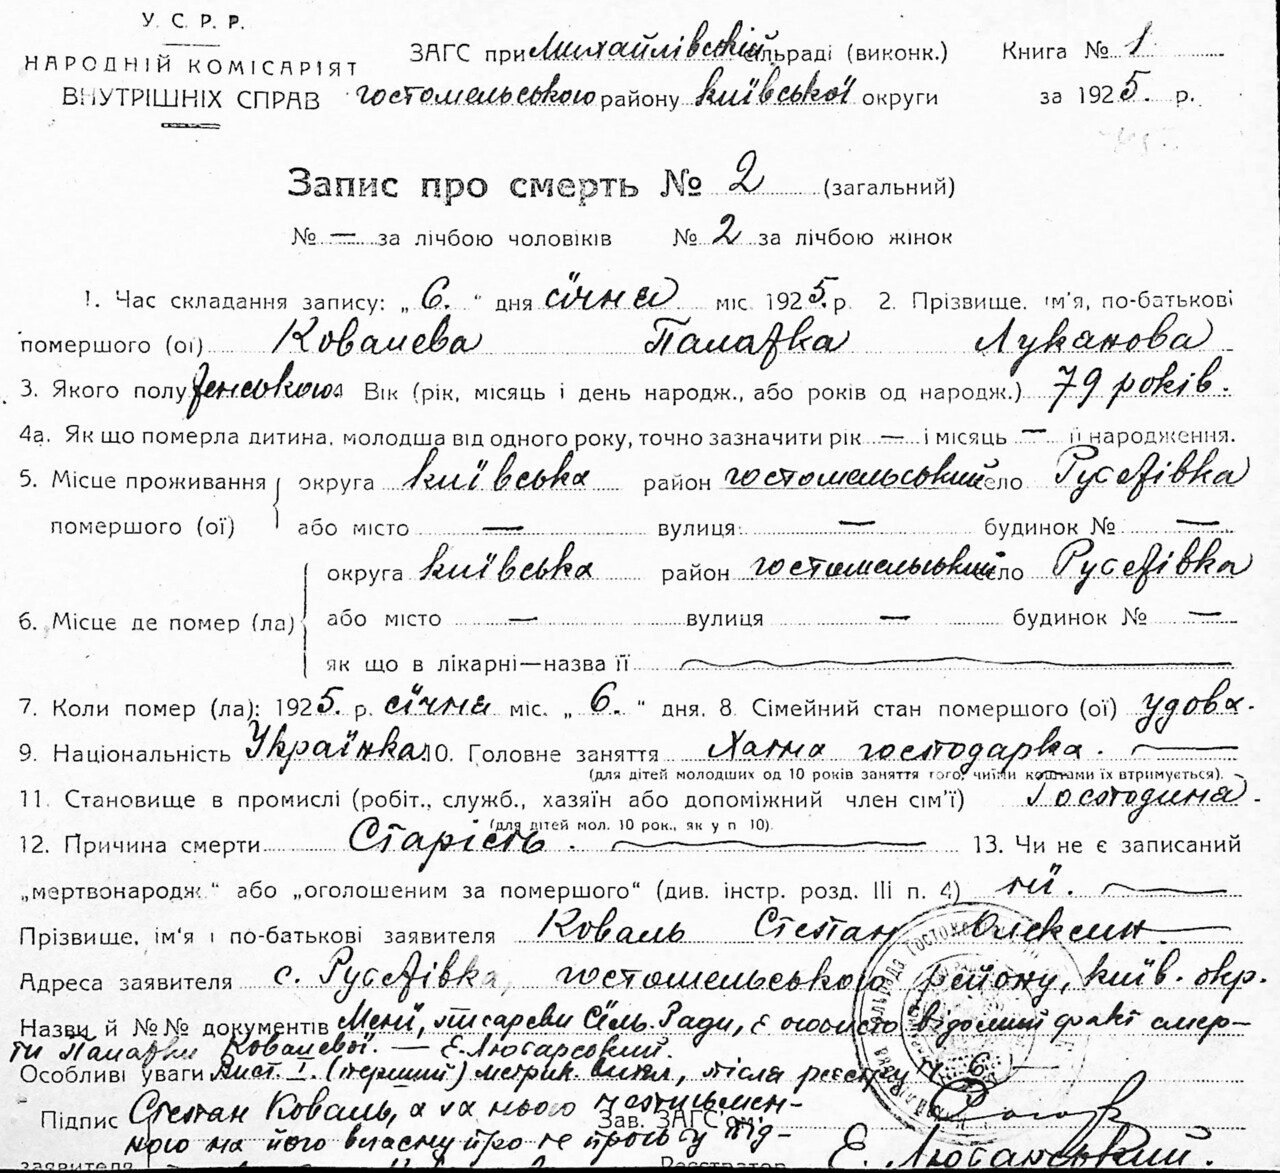 У. С. Р. Р.
НАРОДНІЙ КОМІСАРІЯТ
ВНУТРІШНІХ СПРАВ
ЗАГС при Михайлівській сільраді (виконк.) Книга № 1
гостомельського району київської округи за 1925. р.
Запис про смерть № 2 (загальний)
№ — за лічбою чоловіків № 2 за лічбою жінок
1. Час складання запису: „ 6. “ дня січня міс. 1925. р. 2. Прізвище, ім'я, по-батькові
помершого (ої) Ковалева Палажка Луканова
3. Якого полу женського 4 Вік (рік, місяць і день народж., або років од народж.) 79 років.
4а. Як що померла дитина, молодша від одного року, точно зазначити рік — і місяць — її народження.
5. Місце проживання помершого (ої) округа київська район гостомельський село
або місто — вулиця: — будинок № —
6. Місце де помер (ла) округа київська район гостомельський село
або місто — вулиця — будинок № —
як що в лікарні—назва її
7. Коли помер (ла): 1925. р. січня міс. „ 6. “ дня. 8. Сімейний стан помершого (ої) удова.
9. Національність Українка 10. Головне заняття Хатня господарка.
(для дітей молодших од 10 років заняття того, чиїми коштами їх втримується).
11. Становище в промислі (робіт., служб., хазяїн або допоміжний член сім'ї) Господиня.
(для дітей мол. 10 рок., як у п 10).
12. Причина смерти Старість. 13. Чи не є записаний
„мертвонародж.“ або „оголошеним за помершого“ (див. інстр. розд. III п. 4) ні.
Прізвище, ім'я і по-батькові заявителя Коваль Степан
Адреса заявителя с. гостомельського району, київ. окр.
Назви й №№ документів Мені, писареви Сіль. Ради, є особисто відомий факт смер-
ти Палажки Ковалевої. —
Особливі уваги (перший) після
Підпис Степан Коваль, а за нього неписьмен-
Зав. ЗАГС'ом
ного на його власну про
заявителя
Реєстратор